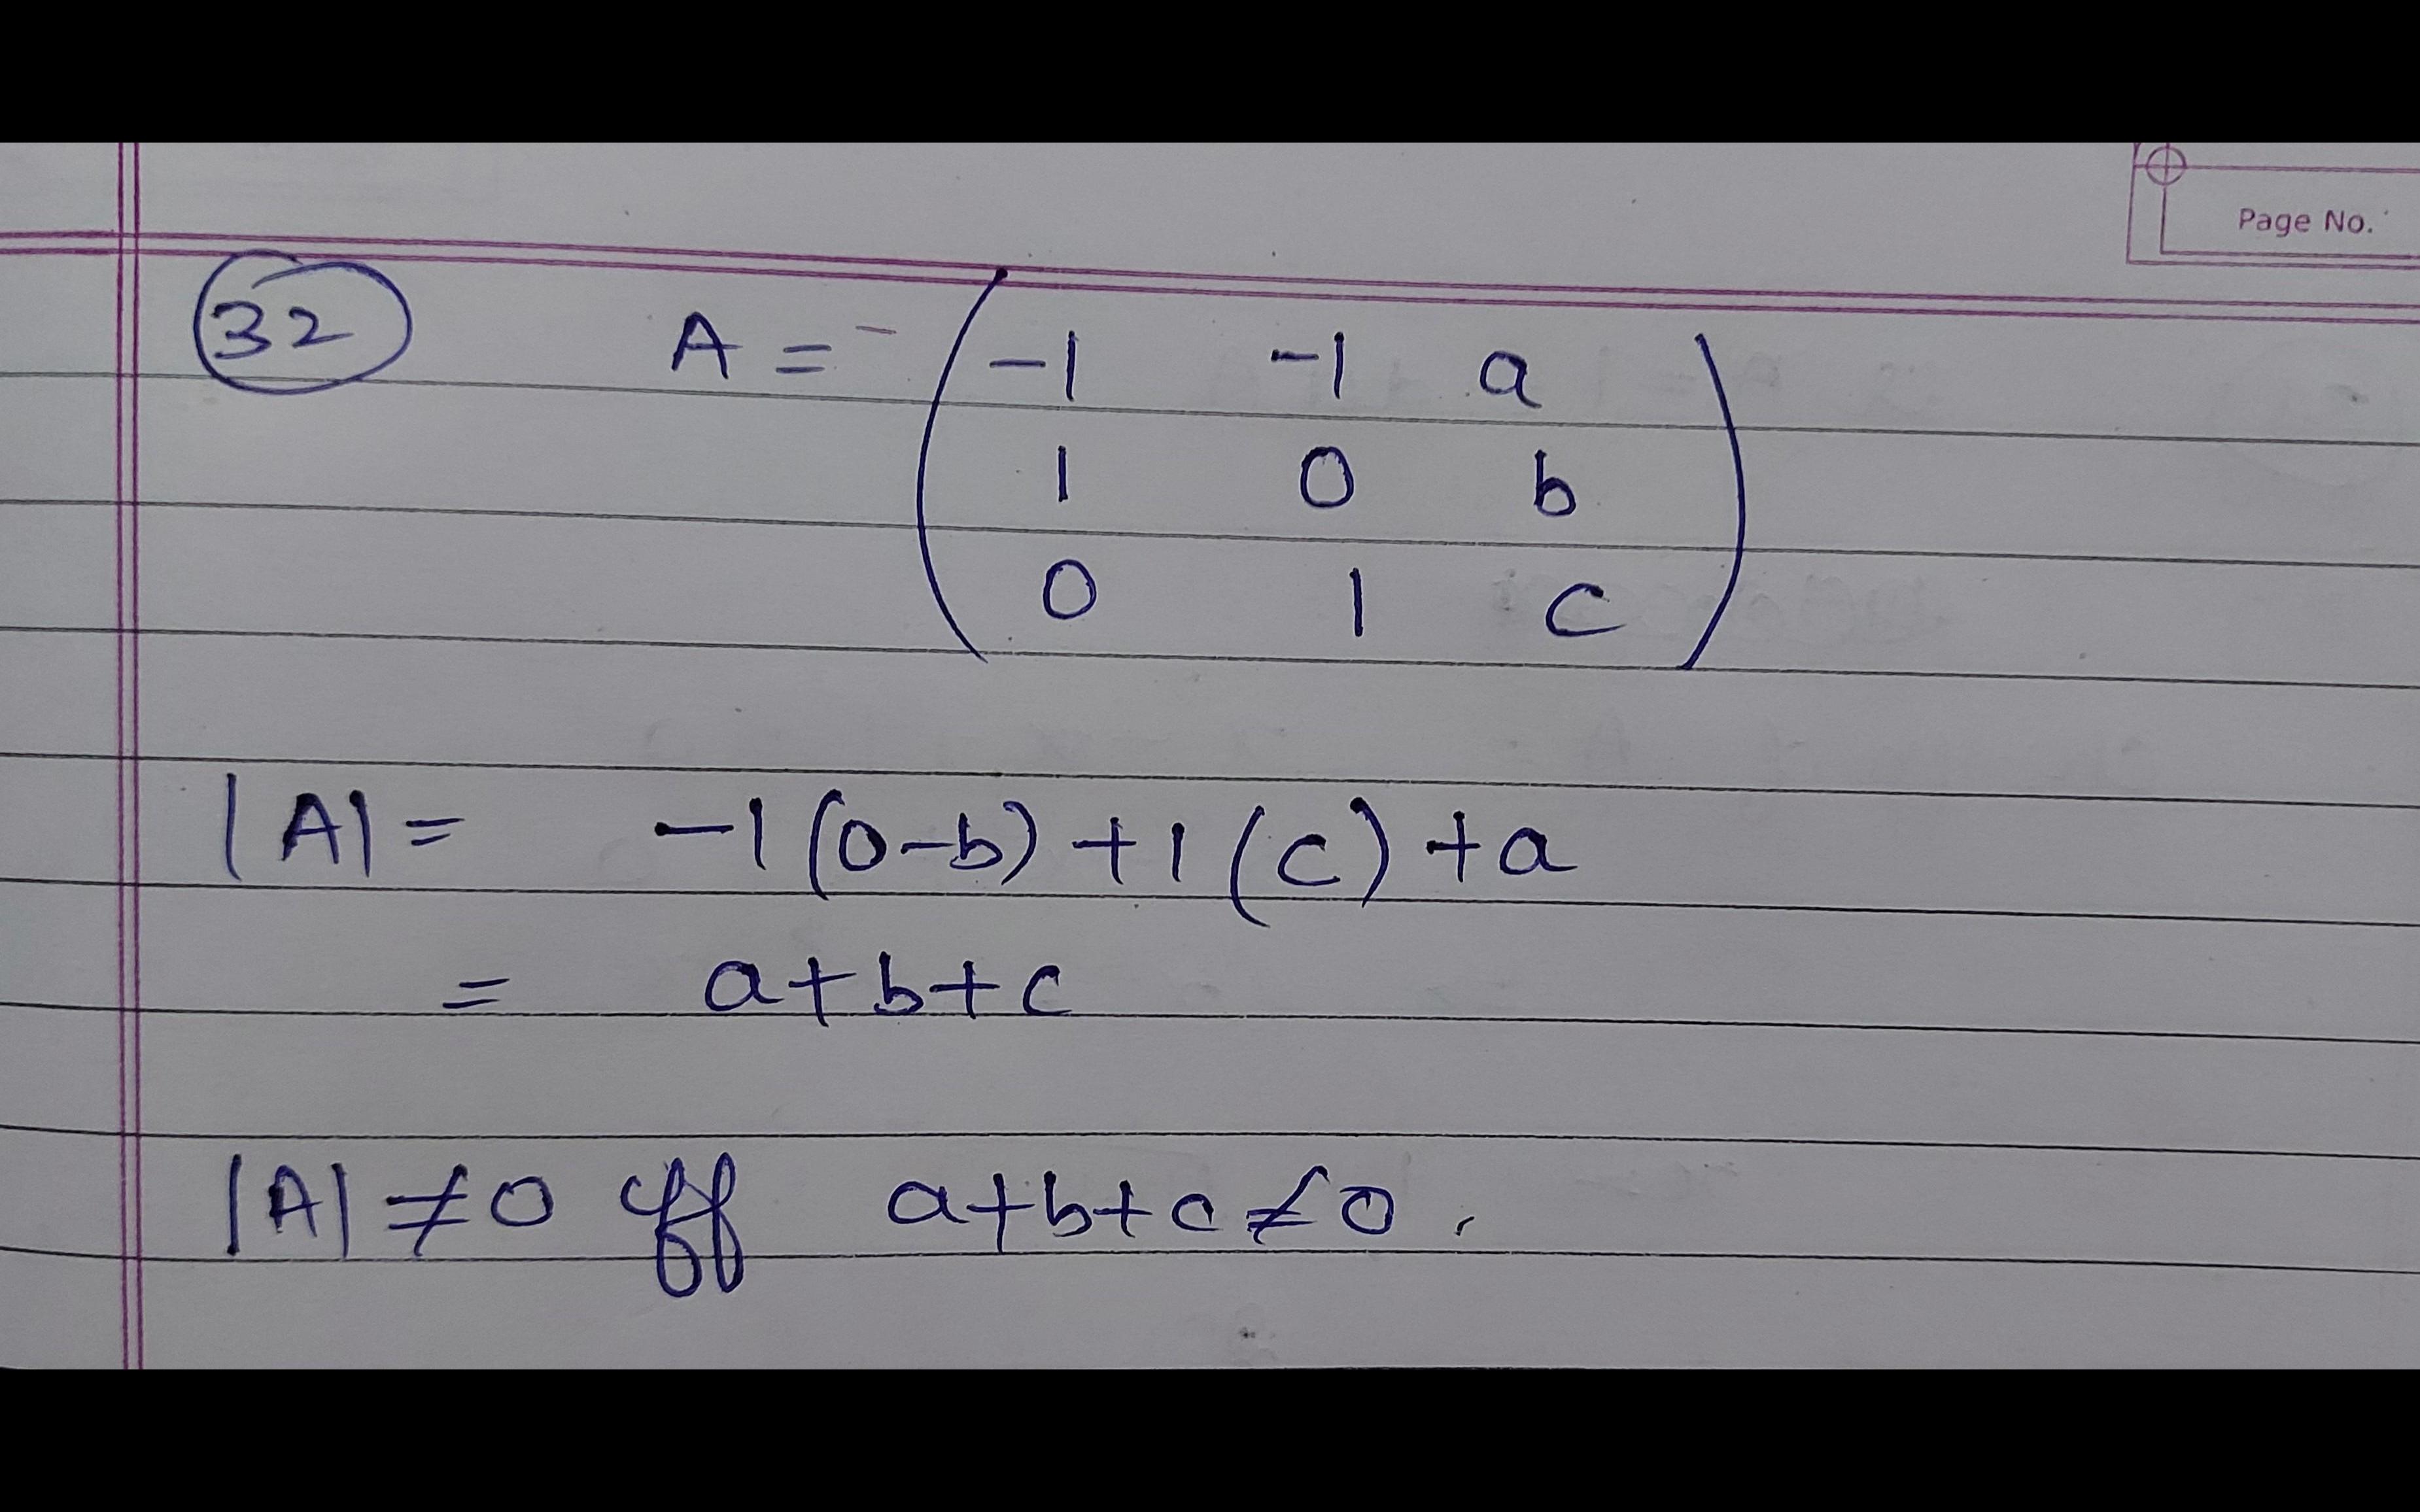 Page No.
32 A = ( -1 -1 a
1 0 b
0 1 c )
|A| = -1(0-b) +1(c) +a
= a+b+c
|A| ≠ 0 iff a+b+c ≠ 0.